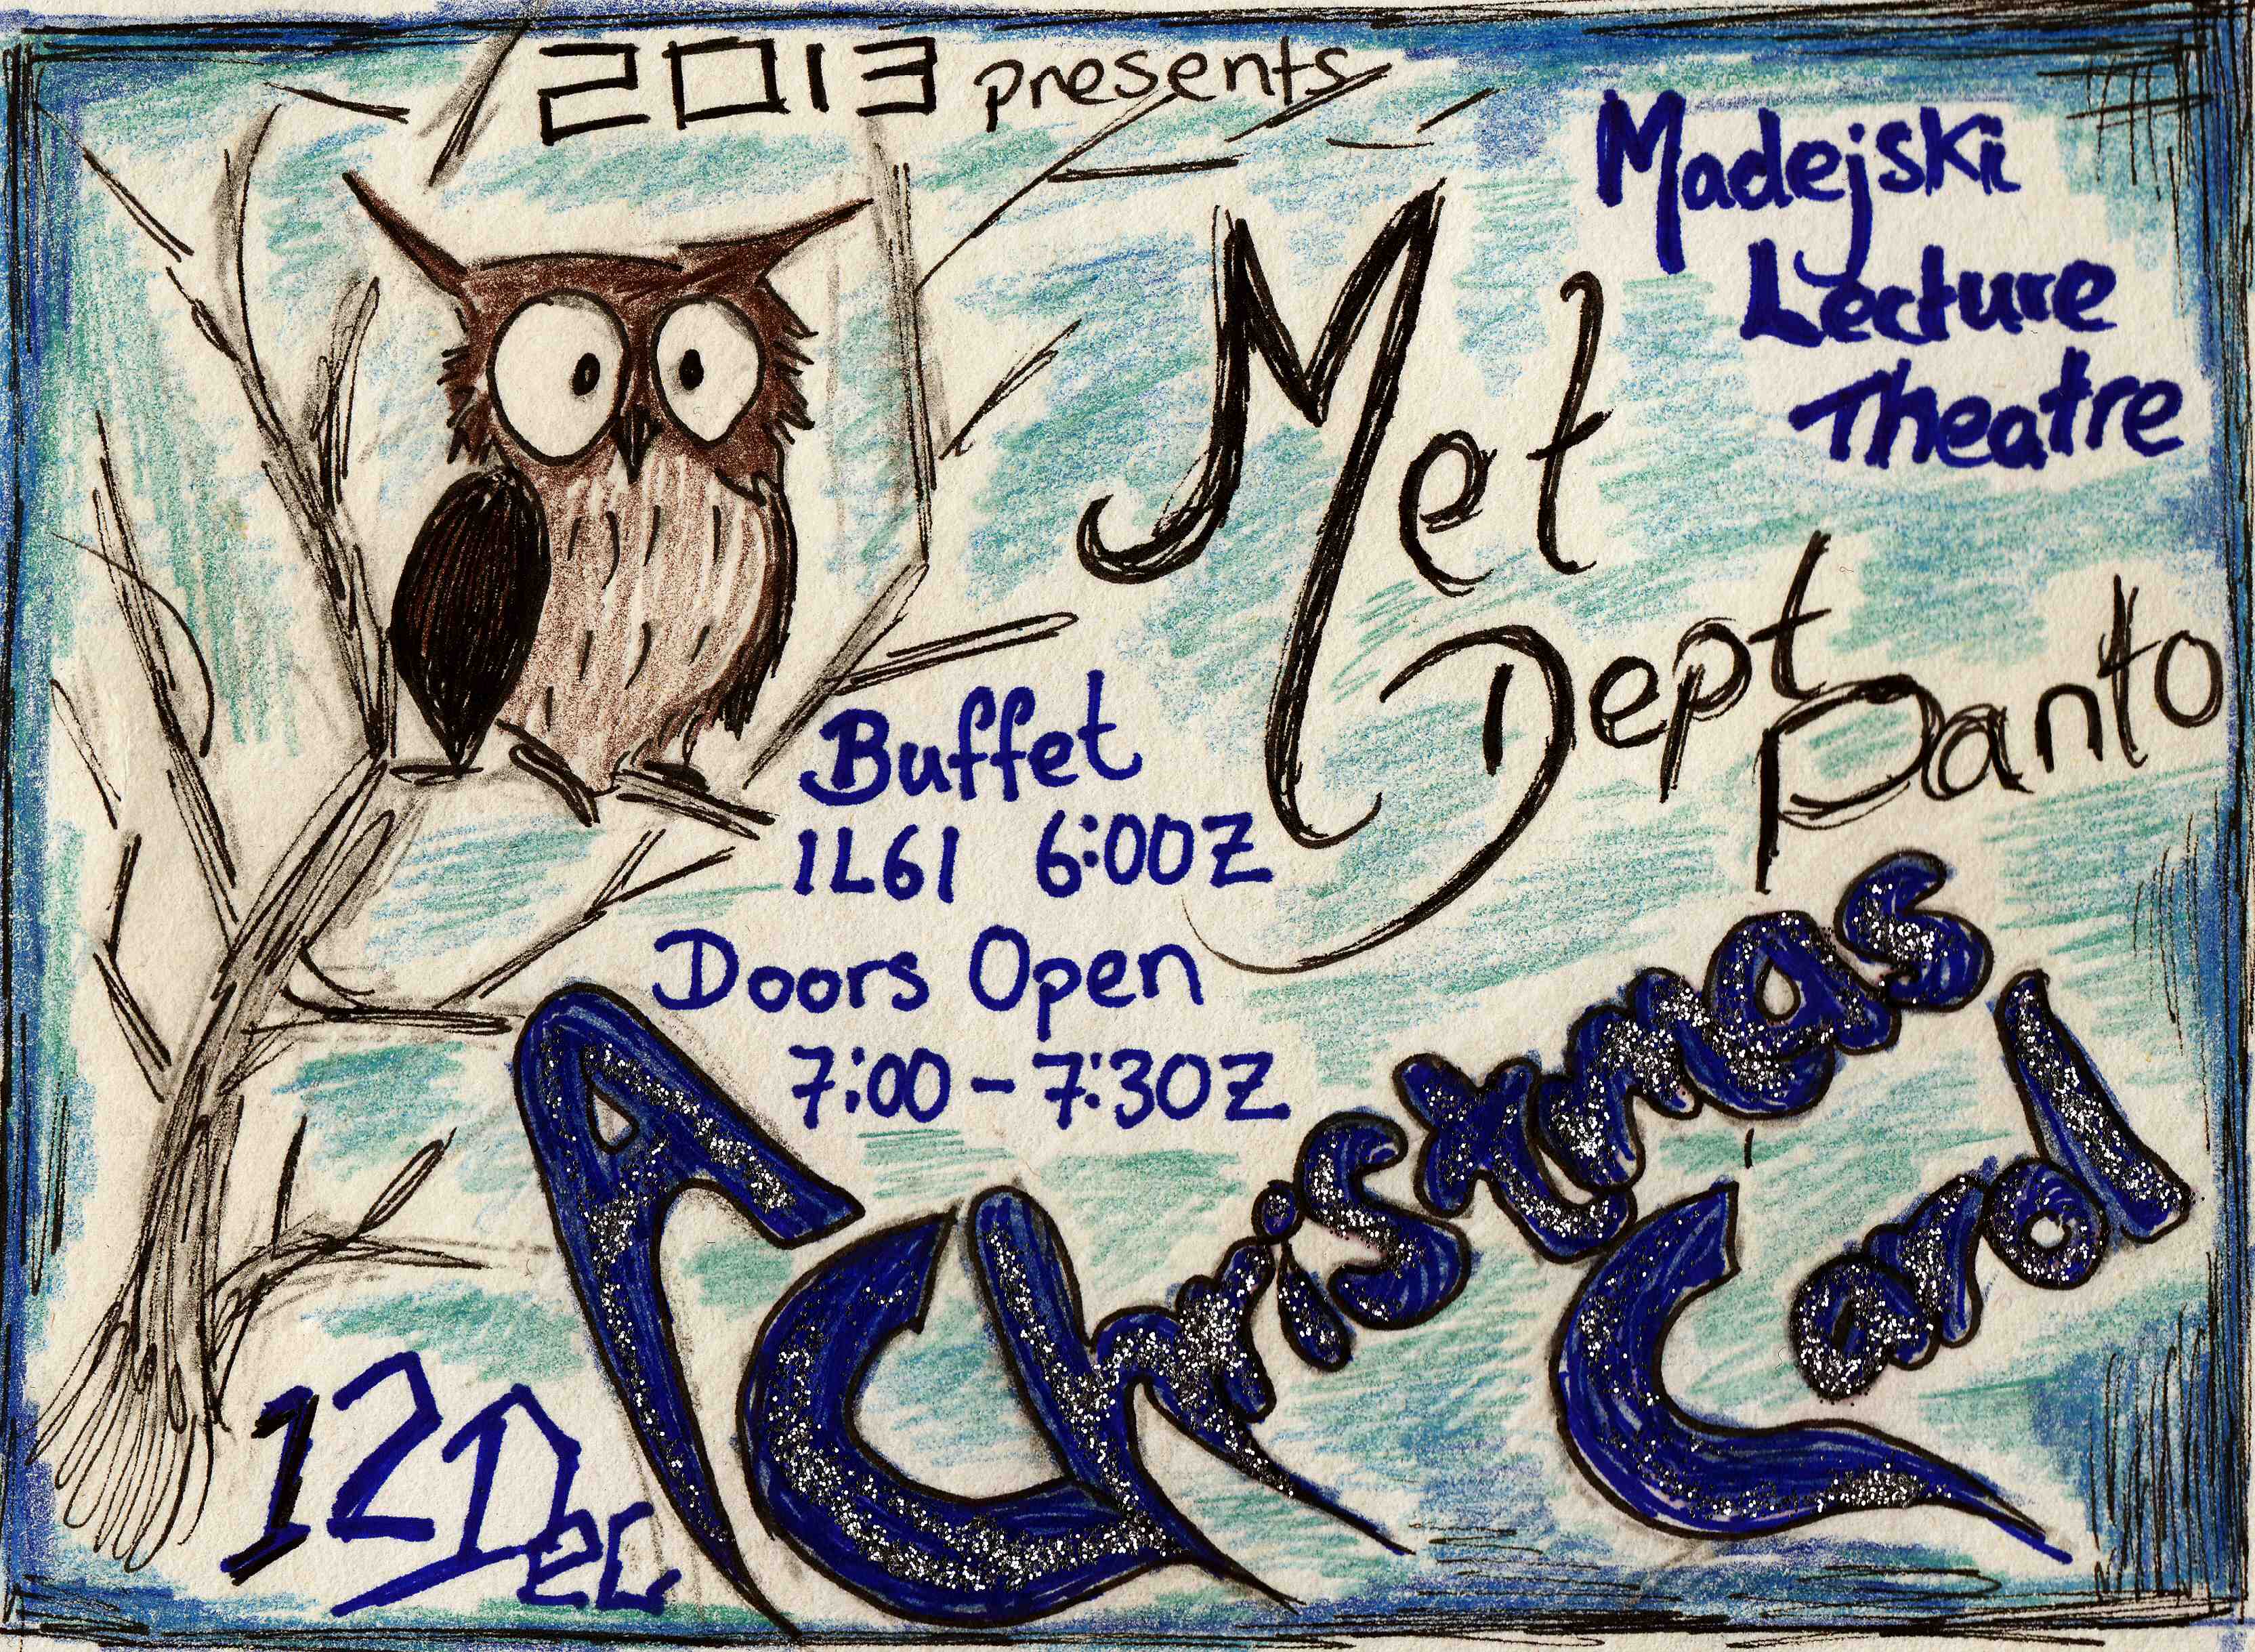 2013 presents
Madejski
Lecture
Theatre
Met
Dept
Panto
Buffet
1L61 6:00Z
Doors Open
7:00 - 7:30Z
A Christmas
Carol
12 Dec